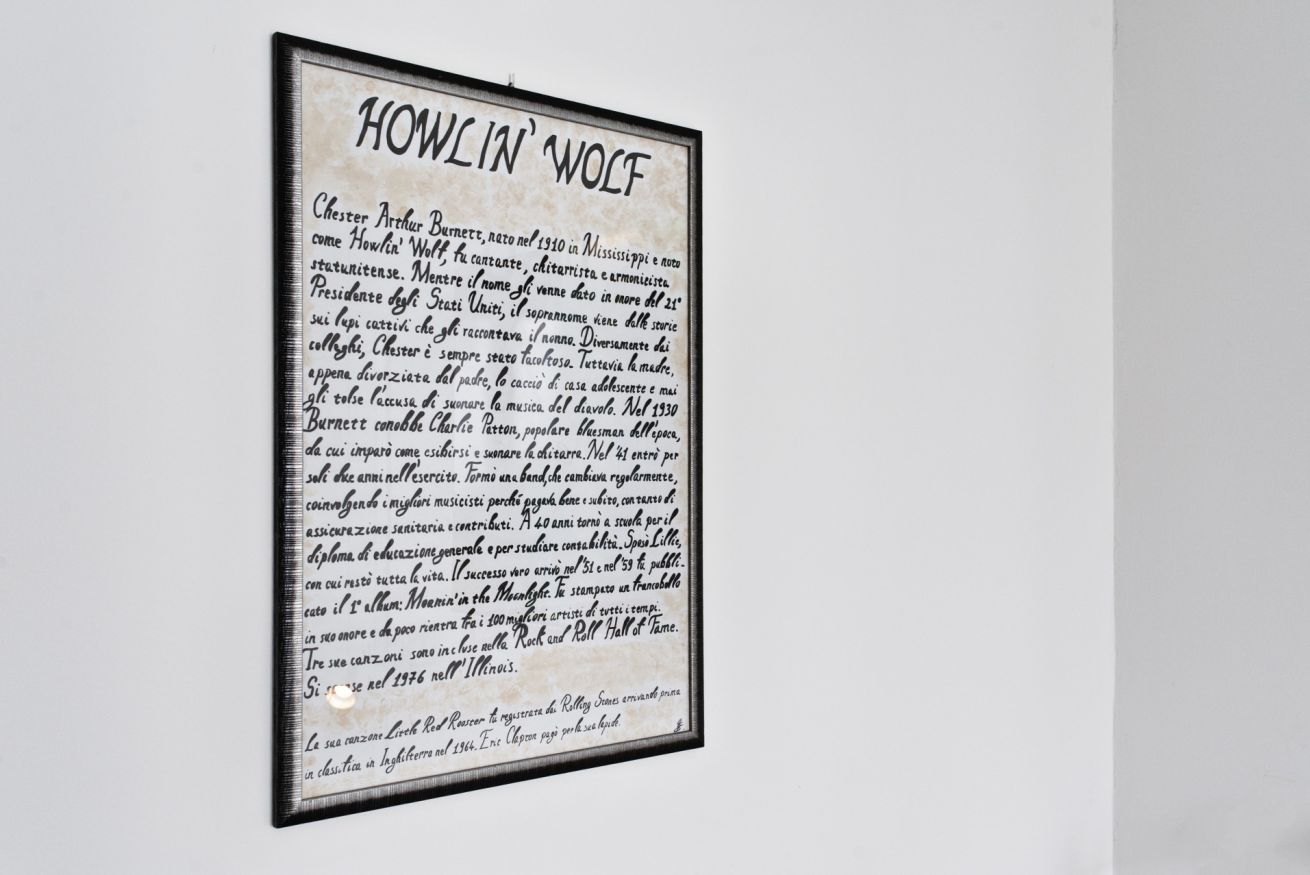 HOWLIN' WOLF
Chester Arthur Burnett, nato nel 1910 in Mississippi e noto
come Howlin' Wolf, fu cantante, chitarrista e armonicista
statunitense. Mentre il nome gli venne dato in onore del 21°
Presidente degli Stati Uniti, il soprannome viene dalle storie
sui lupi cattivi che gli raccontava il nonno. Diversamente dai
colleghi, Chester è sempre stato facoltoso. Tuttavia la madre,
appena divorziata dal padre, lo cacciò di casa adolescente e mai
gli tolse l'accusa di suonare la musica del diavolo. Nel 1930
Burnett conobbe Charlie Patton, popolare bluesman dell'epoca,
da cui imparò come esibirsi e suonare la chitarra. Nel '41 entrò per
soli due anni nell'esercito. Formò una band, che cambiava regolarmente,
coinvolgendo i migliori musicisti perché pagava bene e subito, con tanto di
assicurazione sanitaria e contributi. A 40 anni tornò a scuola per il
diploma di educazione generale e per studiare contabilità. Sposò Lillie,
con cui restò tutta la vita. Il successo vero arrivò nel '51 e nel '59 fu pubbli-
cato il 1° album: Moanin' in the Moonlight. Fu stampato un francobollo
in suo onore e da poco rientra fra i 100 migliori artisti di tutti i tempi.
Tre sue canzoni sono incluse nella Rock and Roll Hall of Fame.
Si spense nel 1976 nell'Illinois.
La sua canzone Little Red Rooster fu registrata dai Rolling Stones arrivando prima
in classifica in Inghilterra nel 1964. Eric Clapton pagò per la sua lapide.